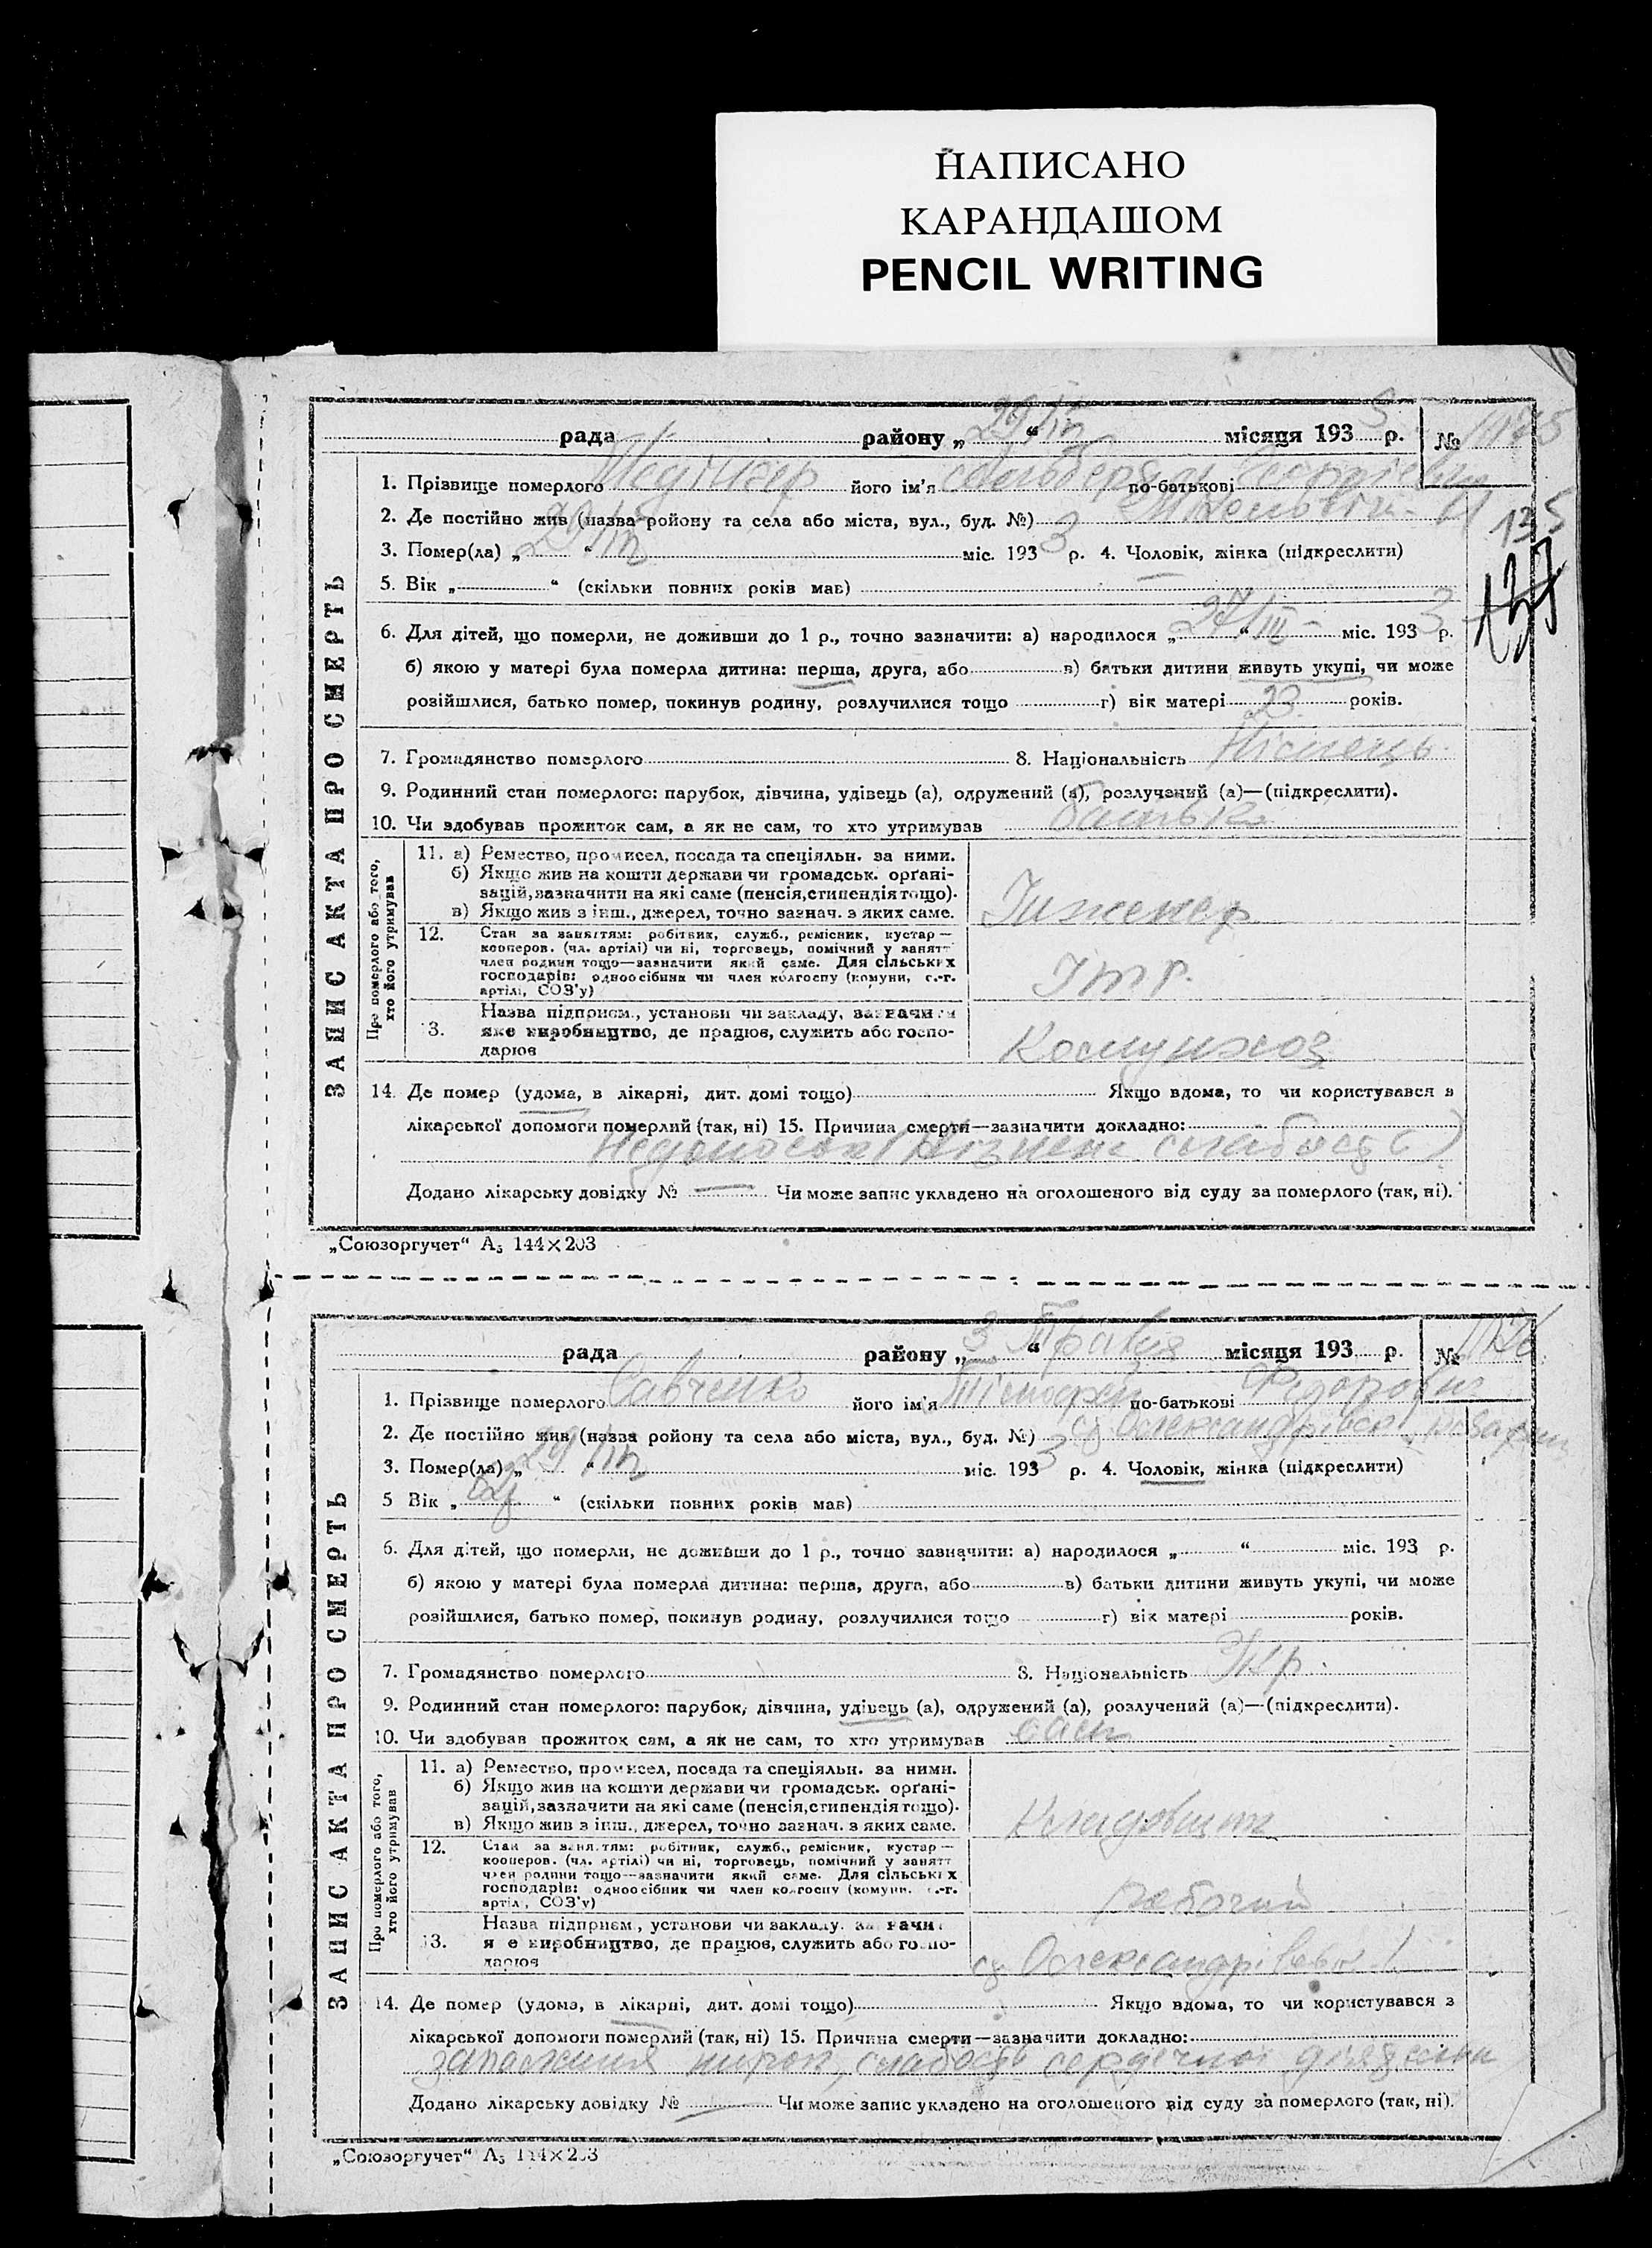 НАПИСАНО
КАРАНДАШОМ
PENCIL WRITING
рада району „ 29/IV “ місяця 193 3 р. №
1. Прізвище померлого його ім'я по-батькові
2. Де постійно жив (назва ройону та села або міста, вул., буд. №)
135
3. Помер(ла) „ 29/IV “ міс. 193 3 р. 4. Чоловік, жінка (підкреслити)
137
5. Вік „ “ (скільки повних років мав)
6. Для дітей, що померли, не доживши до 1 р., точно зазначити: а) народилося „ 27/III “ міс. 193 3 р.
б) якою у матері була померла дитина: перша, друга, або в) батьки дитини живуть укупі, чи може
розійшлися, батько помер, покинув родину, розлучилися тощо г) вік матері 23 років.
7. Громадянство померлого 8. Національність Німець
9. Родинний стан померлого: парубок, дівчина, удівець (а), одружений (а), розлучений (а)—(підкреслити).
10. Чи здобував прожиток сам, а як не сам, то хто утримував батько
ЗАПИС АКТА ПРО СМЕРТЬ
Про померлого або того, хто його утримував
11. а) Ремество, промисел, посада та спеціяльн. за ними.
б) Якщо жив на кошти держави чи громадськ. орґані-
зацій, зазначити на які саме (пенсія, стипендія тощо).
в) Якщо жив з інш., джерел, точно зазнач. з яких саме.
Інженер
12. Стан за заняттям: робітник, служб., ремісник, кустар—
кооперов. (чл. артілі) чи ні, торговець, помічний у занятт
член родини тощо—зазначити який саме. Для сільських
господарів: одноосібник чи член колгоспу (комуни, с.-г.
артілі, СОЗ'у)
ІТР.
13. Назва підприєм., установи чи закладу, зазначити
яке виробництво, де працює, служить або госпо-
дарює
Комунхоз
14. Де помер (удома, в лікарні, дит. домі тощо) Якщо вдома, то чи користувався з
лікарської допомоги померлий (так, ні) 15. Причина смерти—зазначити докладно:
Додано лікарську довідку № Чи може запис укладено на оголошеного від суду за померлого (так, ні).
„Союзоргучет“ А5 144×203
рада району „ 3 “ Травня місяця 193 р. №
1. Прізвище померлого Савченко його ім'я Тімофей по-батькові Федорович
2. Де постійно жив (назва ройону та села або міста, вул., буд. №)
3. Помер(ла) „ 29/IV “ міс. 193 3 р. 4. Чоловік, жінка (підкреслити)
5 Вік „ “ (скільки повних років мав)
6. Для дітей, що померли, не доживши до 1 р., точно зазначити: а) народилося „ “ міс. 193 р.
б) якою у матері була померла дитина: перша, друга, або в) батьки дитини живуть укупі, чи може
розійшлися, батько помер, покинув родину, розлучилися тощо г) вік матері років.
7. Громадянство померлого 8. Національність Укр.
9. Родинний стан померлого: парубок, дівчина, удівець (а), одружений (а), розлучений (а)—(підкреслити).
10. Чи здобував прожиток сам, а як не сам, то хто утримував сам
ЗАПИС АКТА ПРО СМЕРТЬ
Про померлого або того, хто його утримував
11. а) Ремество, промисел, посада та спеціяльн. за ними.
б) Якщо жив на кошти держави чи громадськ. орґані-
зацій, зазначити на які саме (пенсія, стипендія тощо).
в) Якщо жив з інш., джерел, точно зазнач. з яких саме.
Кладовщик
12. Стан за заняттям: робітник, служб., ремісник, кустар—
кооперов. (чл. артілі) чи ні, торговець, помічний у занятт
член родини тощо—зазначити який саме. Для сільських
господарів: одноосібник чи член колгоспу (комуни, с.-г.
артілі, СОЗ'у)
рабочий
13. Назва підприєм., установи чи закладу, зазначи
яке виробництво, де працює, служить або госпо-
дарює
14. Де помер (удома, в лікарні, дит. домі тощо) Якщо вдома, то чи користувався з
лікарської допомоги померлий (так, ні) 15. Причина смерти—зазначити докладно:
запалення нирок, слабость сердечної
Додано лікарську довідку № Чи може запис укладено на оголошеного від суду за померлого (так, ні).
„Союзоргучет“ А5 144×203